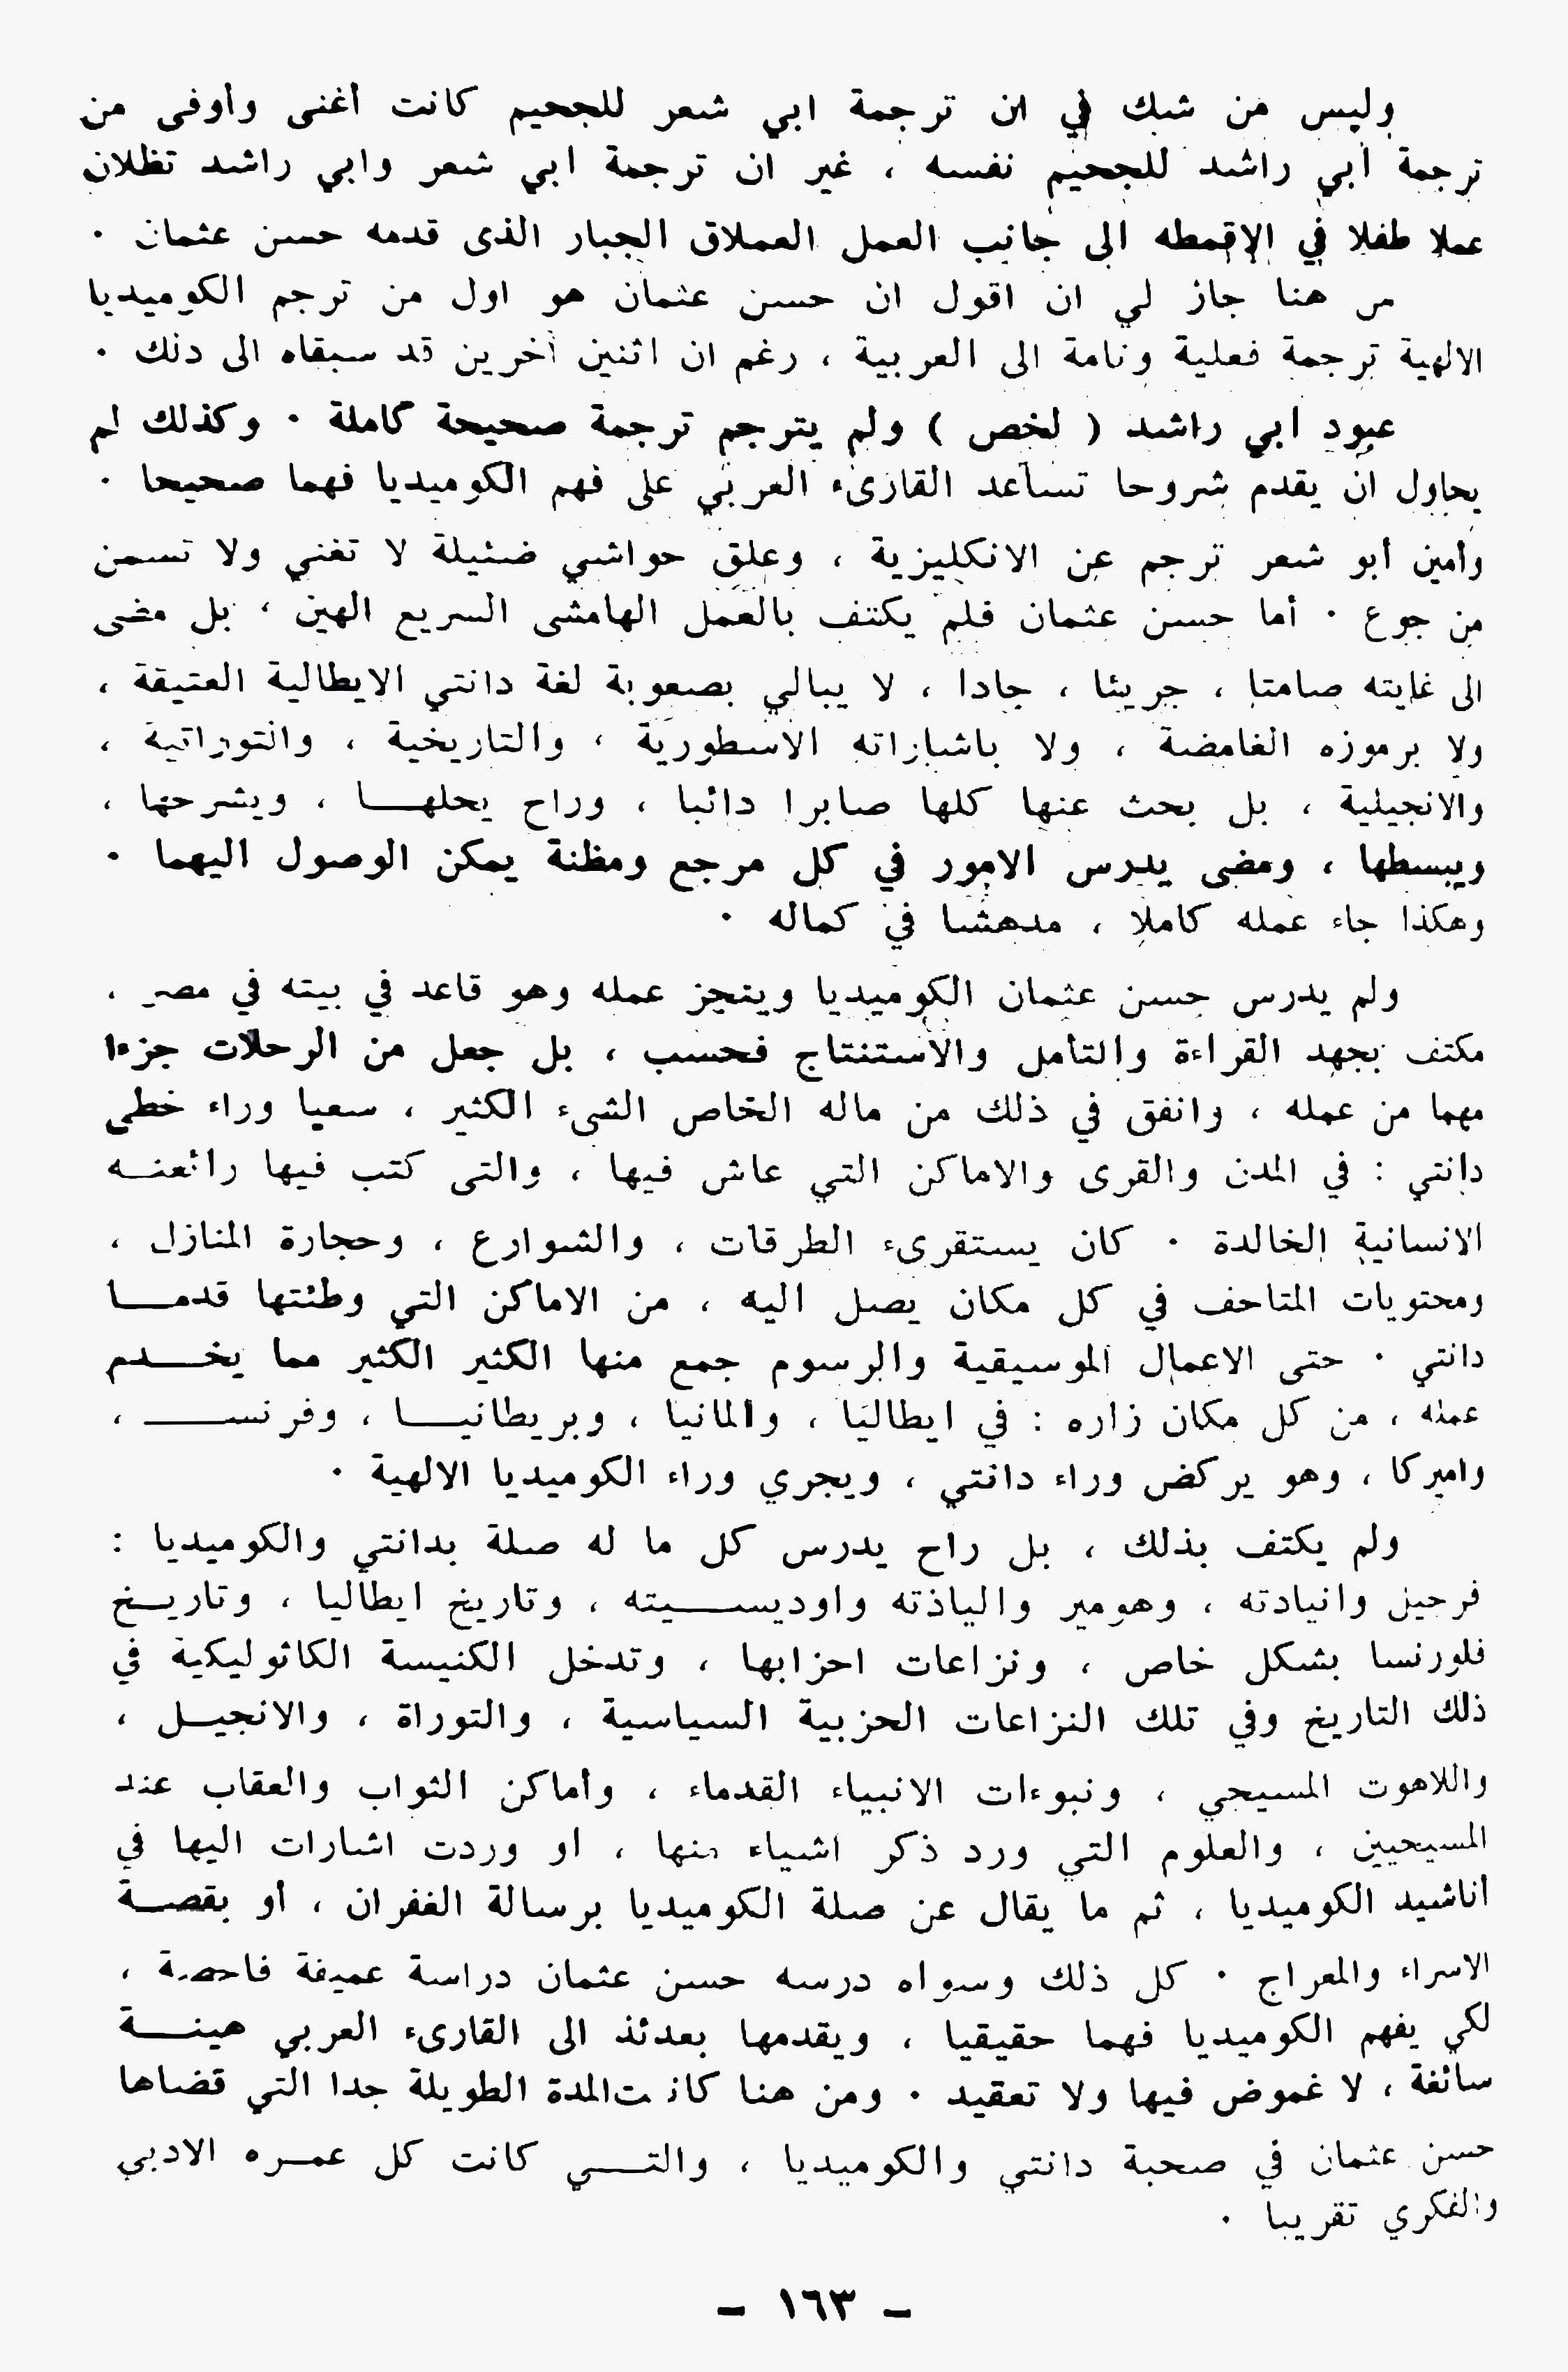 وليس من شك في ان ترجمة ابي شعر للجحيم كانت أغنى وأوفى من
ترجمة أبي راشد للجحيم نفسه ، غير ان ترجمة ابي شعر وابي راشد تظلان
عملا طفلا في الاقمطه الى جانب العمل العملاق الجبار الذى قدمه حسن عثمان ٠
من هنا جاز لي ان اقول ان حسن عثمان هو اول من ترجم الكوميديا
الالهية ترجمة فعلية وتامة الى العربية ، رغم ان اثنين آخرين قد سبقاه الى ذلك ٠
عبود ابي راشد ( لخص ) ولم يترجم ترجمة صحيحة كاملة ٠ وكذلك لم
يحاول ان يقدم شروحا تساعد القارىء العربي على فهم الكوميديا فهما صحيحا ٠
وأمين أبو شعر ترجم عن الانكليزية ، وعلق حواشي ضئيلة لا تغني ولا تسمن
من جوع ٠ أما حسن عثمان فلم يكتف بالعمل الهامشى السريع الهين ، بل مضى
الى غايته صامتا ، جريئا ، جادا ، لا يبالي بصعوبة لغة دانتي الايطالية العتيقة ،
ولا برموزه الغامضة ، ولا باشاراته الاسطورية ، والتاريخية ، والتوراتية ،
والانجيلية ، بل بحث عنها كلها صابرا دائبا ، وراح يحلهــا ، ويشرحها ،
ويبسطها ، ومضى يدرس الامور في كل مرجع ومظنة يمكن الوصول اليهما ٠
وهكذا جاء عمله كاملا ، مدهشا في كماله ٠
ولم يدرس حسن عثمان الكوميديا وينجز عمله وهو قاعد في بيته في مصر ،
مكتف بجهد القراءة والتأمل والاستنتاج فحسب ، بل جعل من الرحلات جزءا
مهما من عمله ، وانفق في ذلك من ماله الخاص الشىء الكثير ، سعيا وراء خطى
دانتي : في المدن والقرى والاماكن التي عاش فيها ، والتى كتب فيها رائعتــه
الانسانية الخالدة ٠ كان يستقرىء الطرقات ، والشوارع ، وحجارة المنازل ،
ومحتويات المتاحف في كل مكان يصل اليه ، من الاماكن التي وطئتها قدمــا
دانتي ٠ حتى الاعمال الموسيقية والرسوم جمع منها الكثير الكثير مما يخــدم
عمله ، من كل مكان زاره : في ايطاليا ، والمانيا ، وبريطانيــا ، وفرنســـ ،
واميركا ، وهو يركض وراء دانتي ، ويجري وراء الكوميديا الالهية ٠
ولم يكتف بذلك ، بل راح يدرس كل ما له صلة بدانتي والكوميديا :
فرجيل وانيادته ، وهومير والياذته واوديســيته ، وتاريخ ايطاليا ، وتاريــخ
فلورنسا بشكل خاص ، ونزاعات احزابها ، وتدخل الكنيسة الكاثوليكية في
ذلك التاريخ وفي تلك النزاعات الحزبية السياسية ، والتوراة ، والانجيــل ،
واللاهوت المسيحي ، ونبوءات الانبياء القدماء ، وأماكن الثواب والعقاب عند
المسيحيين ، والعلوم التي ورد ذكر اشياء منها ، او وردت اشارات اليها في
أناشيد الكوميديا ، ثم ما يقال عن صلة الكوميديا برسالة الغفران ، أو بقصــة
الاسراء والمعراج ٠ كل ذلك وسواه درسه حسن عثمان دراسة عميقة فاحصة ،
لكي يفهم الكوميديا فهما حقيقيا ، ويقدمها بعدئذ الى القارىء العربي هينــة
سائغة ، لا غموض فيها ولا تعقيد ٠ ومن هنا كانت المدة الطويلة جدا التي قضاها
حسن عثمان في صحبة دانتي والكوميديا ، والتــي كانت كل عمــره الادبي
والفكري تقريبا ٠
– ١٦٣ –